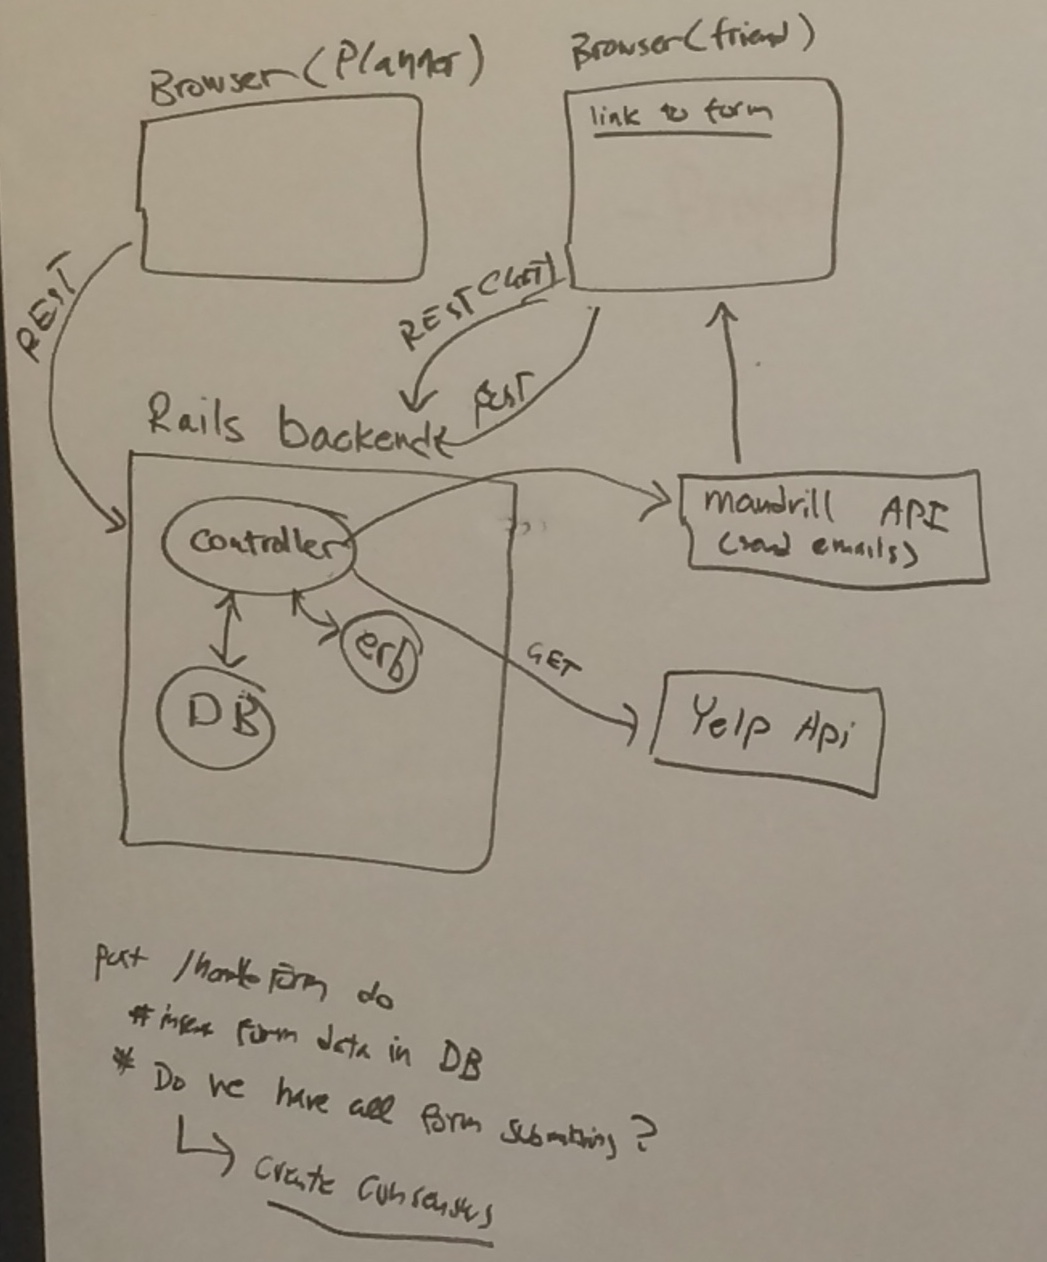 Browser (Planner)
Browser (friend)
link to form
REST
REST (GET)
POST
Rails backend
controller
DB
erb
mandrill API
(send emails)
GET
Yelp Api
post / form do
# insert form data in DB
* Do we have all form submitting?
create consensus